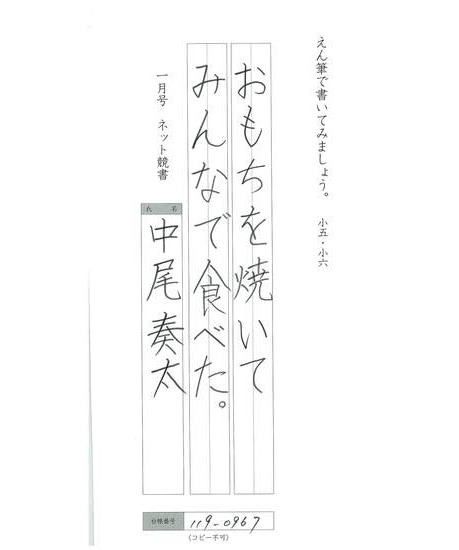 えん筆で書いてみましょう。 小五・小六
おもちを焼いて
みんなで食べた。
一月号 ネット競書
氏名
中尾奏太
台帳番号 119-0967
(コピー不可)